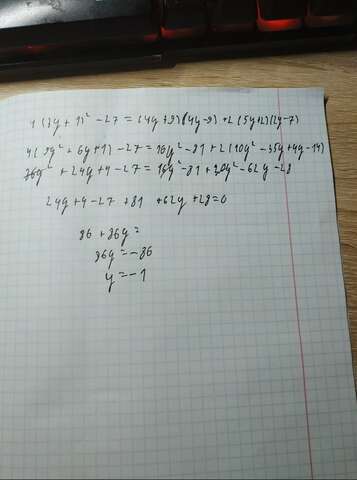 4(3y+1)² -27 = (4y+9)(4y-9) +2(5y+2)(2y-7)
4(9y²+6y+1) -27 = 16y² -81 +2(10y² -35y+4y-14)
36y² +24y+4-27 = 16y² -81 +20y² -62y -28
24y+4-27 +81 +62y +28=0
86 +86y=
86y=-86
y=-1